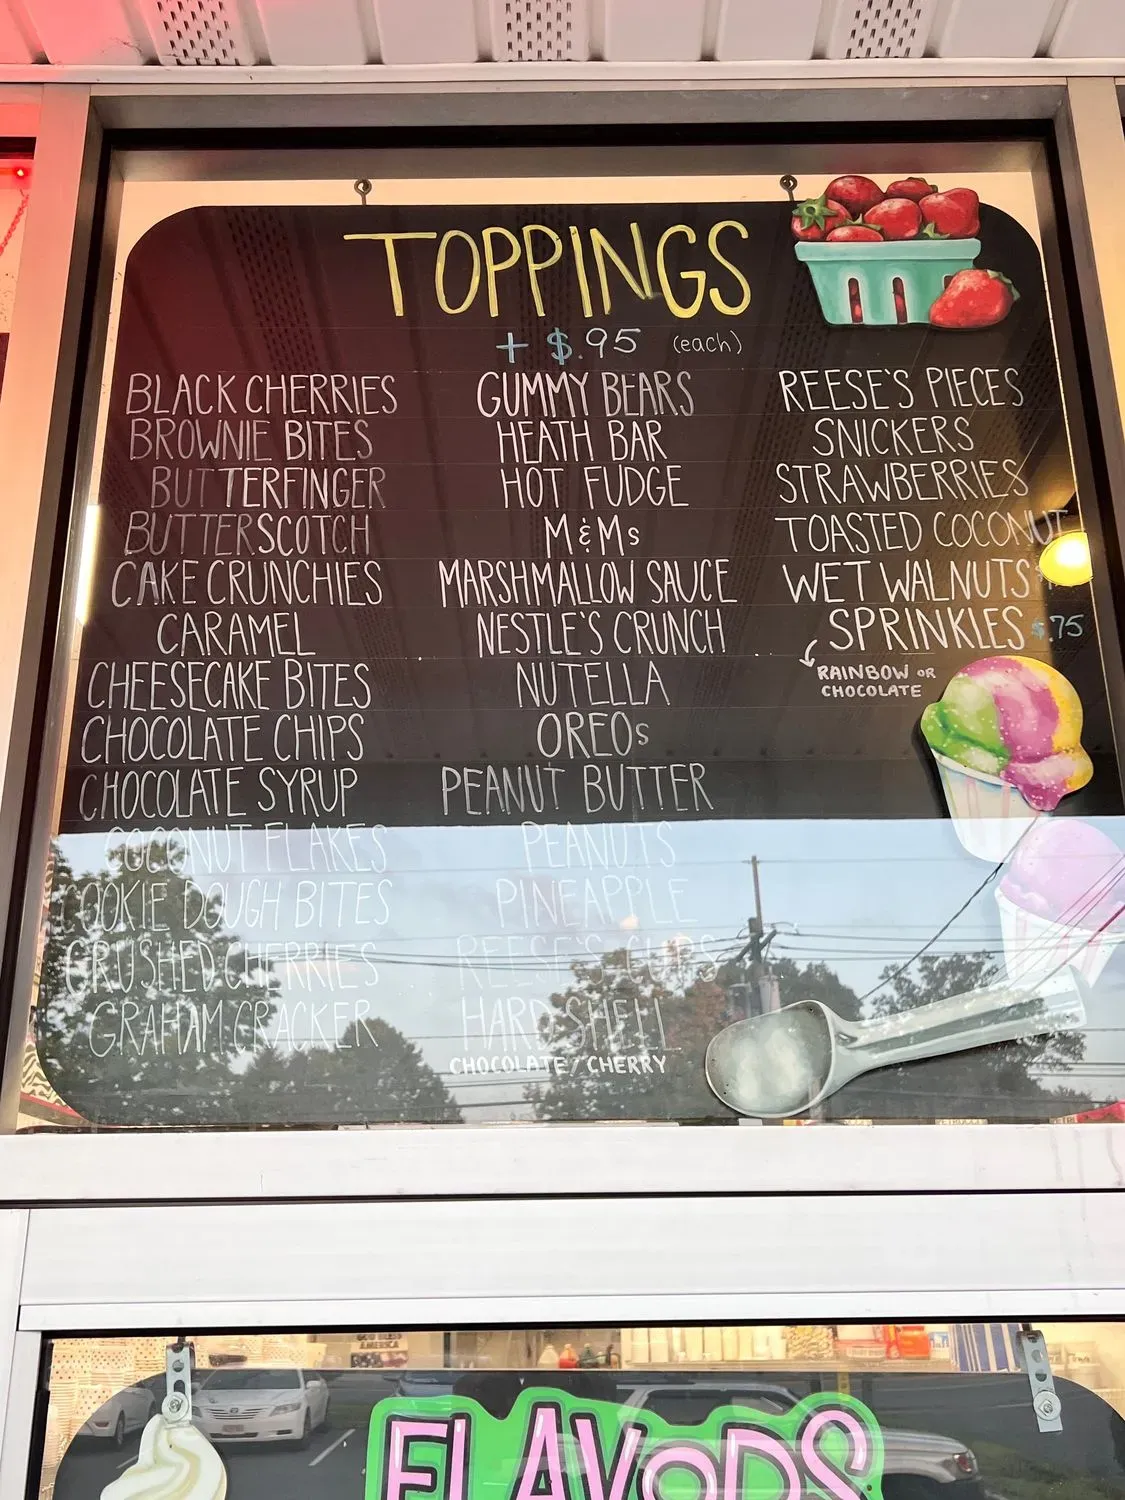 TOPPINGS
+ $.95 (each)
BLACK CHERRIES
BROWNIE BITES
BUTTERFINGER
BUTTERSCOTCH
CAKE CRUNCHIES
CARAMEL
CHEESECAKE BITES
CHOCOLATE CHIPS
CHOCOLATE SYRUP
COCONUT FLAKES
COOKIE DOUGH BITES
CRUSHED CHERRIES
GRAHAM CRACKER
GUMMY BEARS
HEATH BAR
HOT FUDGE
M&Ms
MARSHMALLOW SAUCE
NESTLE'S CRUNCH
NUTELLA
OREOs
PEANUT BUTTER
PEANUTS
PINEAPPLE
REESE'S CUPS
HARD SHELL
CHOCOLATE/CHERRY
REESE'S PIECES
SNICKERS
STRAWBERRIES
TOASTED COCONUT
WET WALNUTS
SPRINKLES $.75
RAINBOW OR
CHOCOLATE
GOD BLESS
AMERICA
FLAVORS